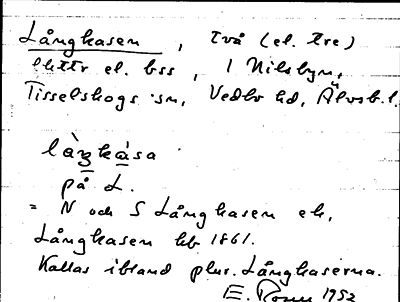 Långhasen, två (el. tre)
lhttr el. bss, i Nilsbyn,
Tisselskogs sn, Vedbo hd, Älvsb. l.
på L.
= N och S Långhasen ek,
Långhasen hb 1861.
Kallas ibland plur. Långhaserna.
E. 1952